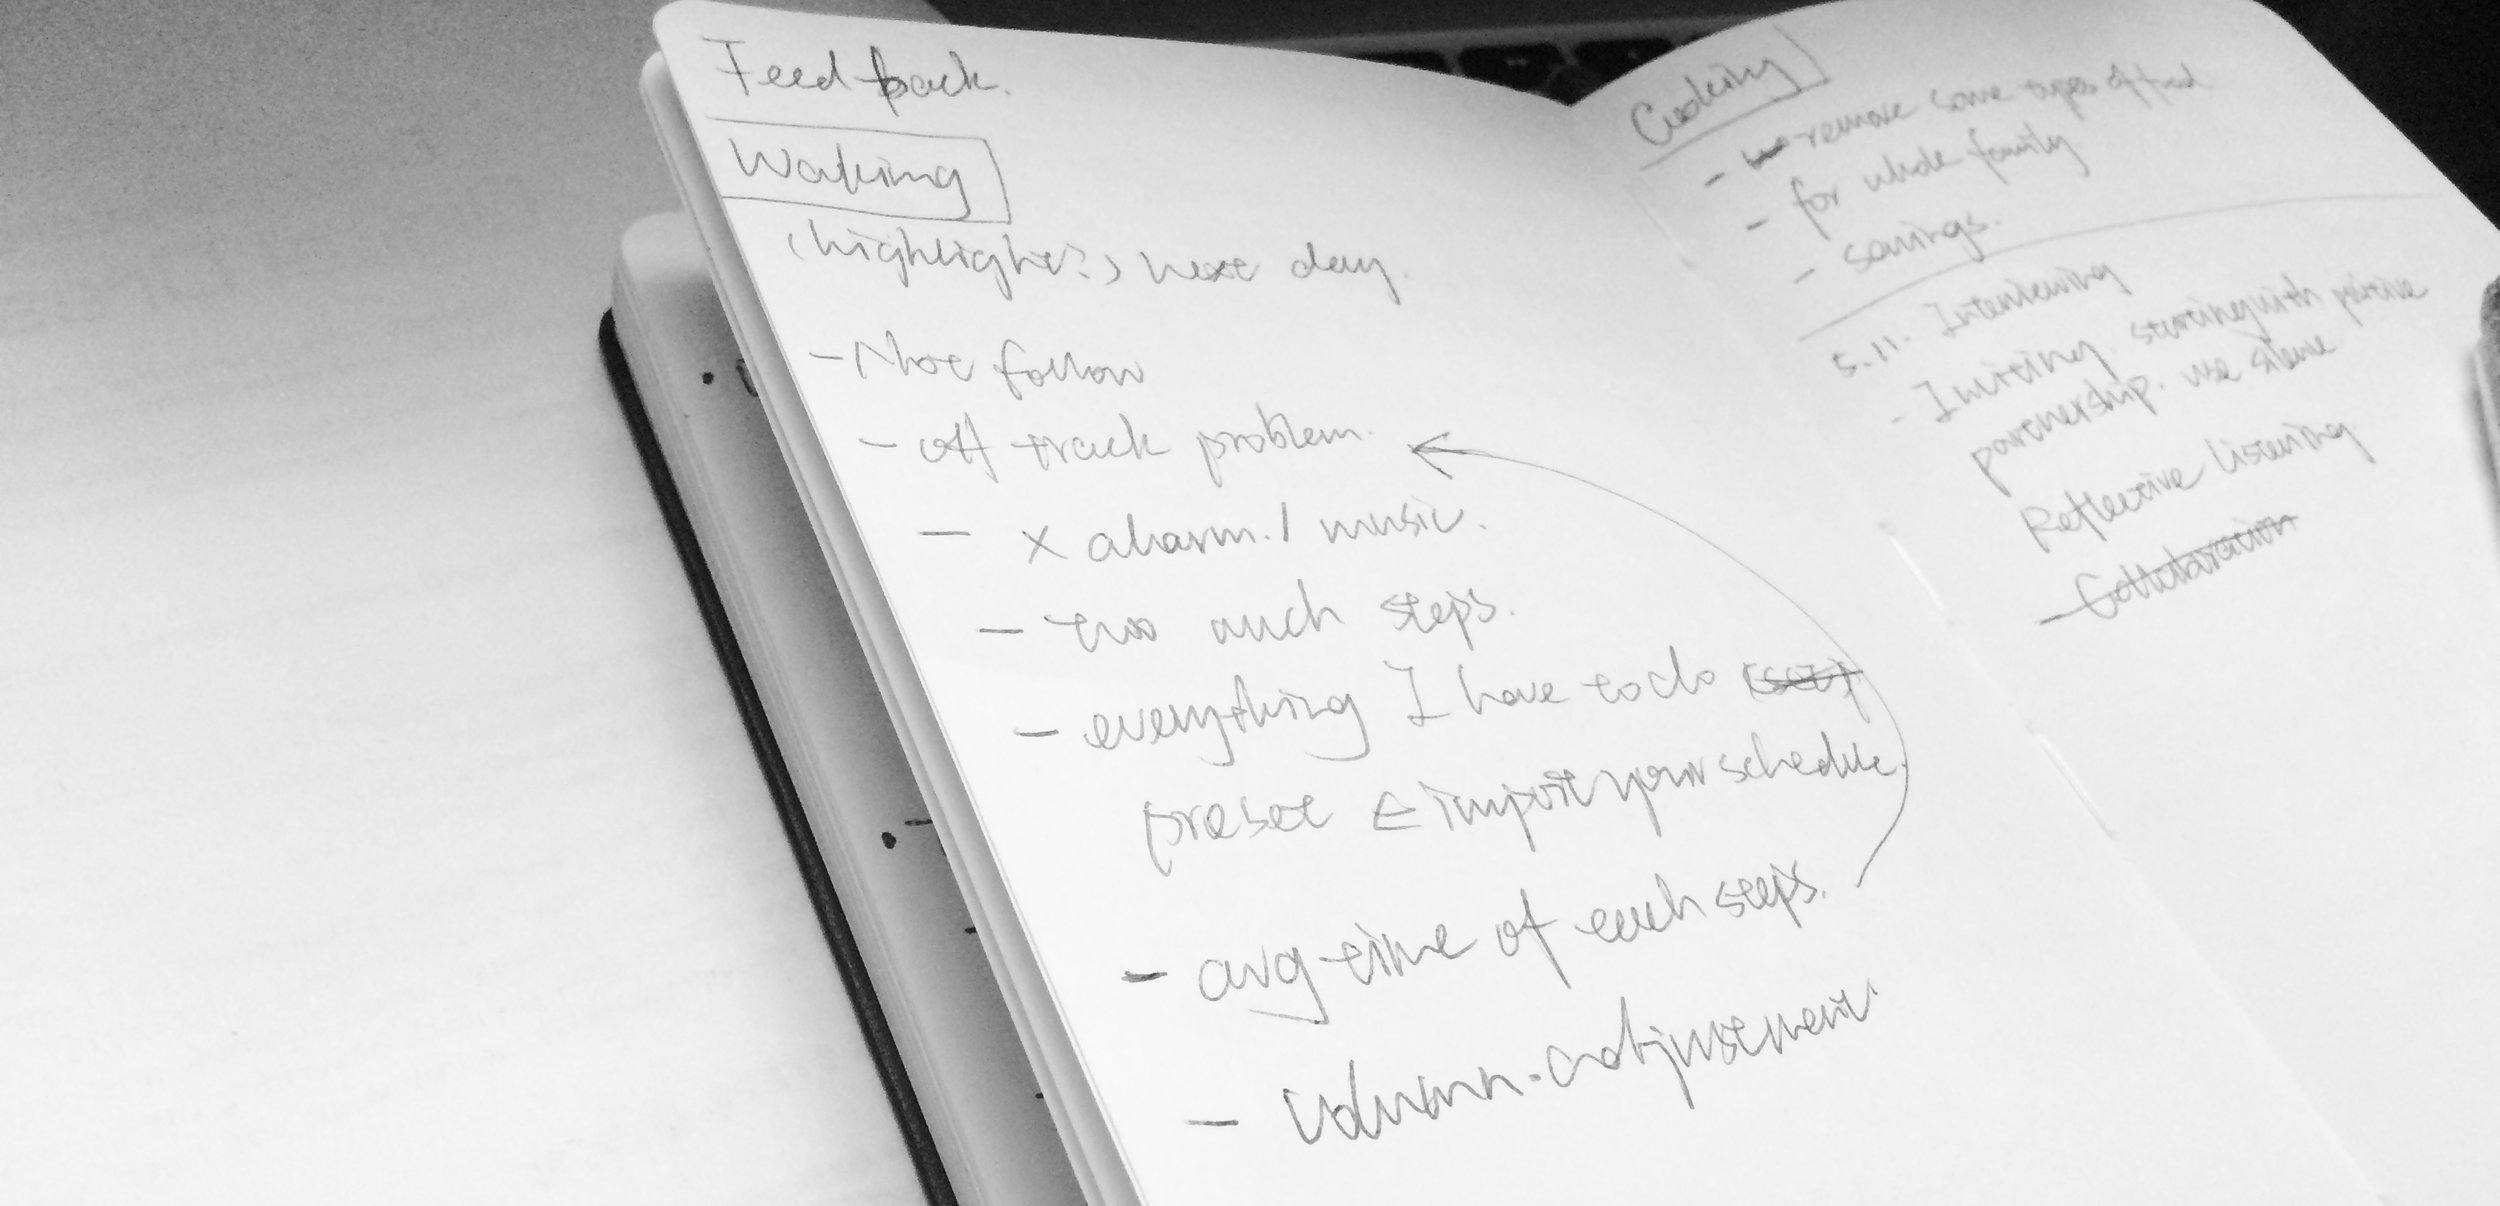 Feedback.
Waking
(highlight?) next day.
- Not follow
- off track problem.
- x alarm. / music.
- too much steps.
- everything I have to do (set)
preset ← import your schedule.
- avg time of each steps.
- adjustment
Cooking
- remove some types of food
- for whole family
- savings.
5.11. Interviewing
- Inviting. starting with positive
partnership. use silence
Reflective listening.
- Collaboration